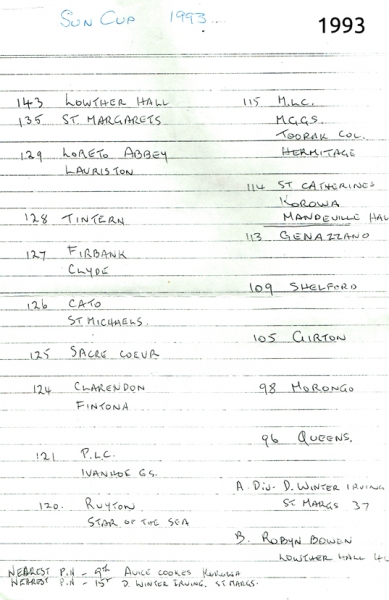 SUN CUP 1993
1993
143 LOWTHER HALL
135 ST. MARGARETS
129 LORETO ABBEY
LAURISTON
128 TINTERN
127 FIRBANK
CLYDE
126 CATO
ST MICHAELS.
125 SACRE COEUR
124 CLARENDON
FINTONA
121 P.L.C.
IVANHOE GS.
120. RUYTON
STAR OF THE SEA
115 M.L.C.
M.G.G.S.
TOORAK COL.
HERMITAGE
114 ST CATHERINES
KOROWA
MANDEVILLE HAL
113 GENAZZANO
109 SHELFORD
105 GIRTON
98 MORONGO
96 QUEENS.
A. Div. D. WINTER IRVING
ST MARGS 37
B. ROBYN BOWEN
LOWTHER HALL
NEAREST PIN - 9th ALICE COOKES KOROWA
NEAREST PIN - 15th D. WINTER IRVING. ST MARGS.